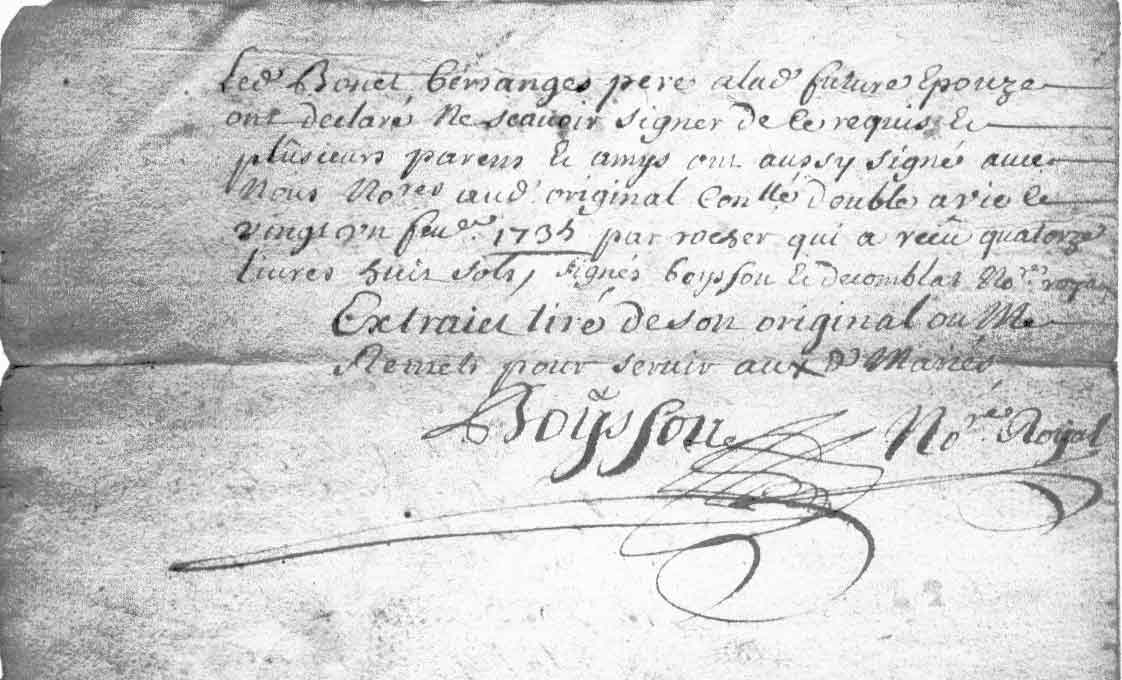 Led. Bonet bérranges pere alad. future Epouze
ont declaré Ne scauoir signer de Ce requis Et
plusieurs parens Et amys ont aussy signé auec
Nous No.res aud. original Con.llé double a vic le
vingt vn feu.er 1735 par rocher qui a receu quatorze
liures huit sols, signés boysson Et decomblat No.res
Extraict tiré de son original ou Me
Remets pour seruir aux d. Mariés
Boÿsson No.re Royal